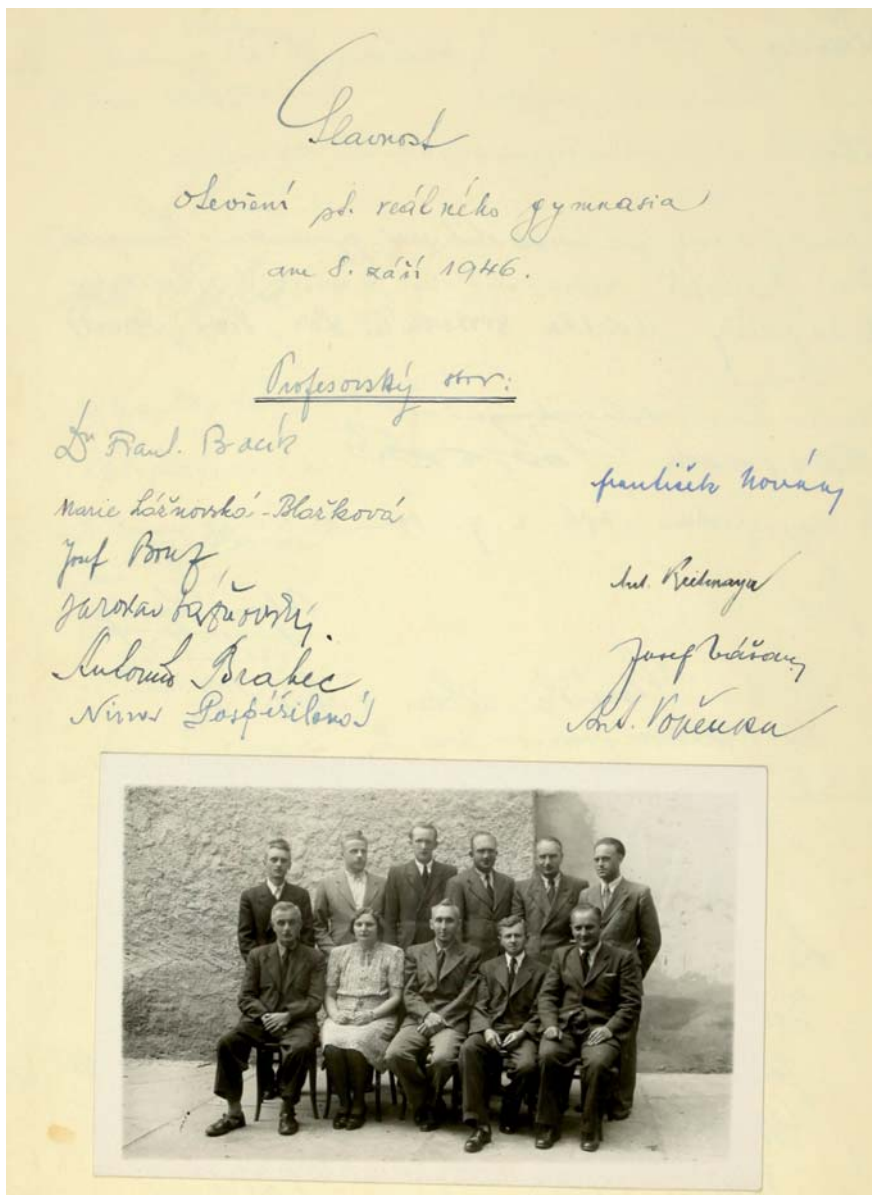 Slavnost
otevření st. reálného gymnasia
dne 8. září 1946.
Profesorský sbor:
Dr Frant. Bacík
Marie Lážnovská-Blažková
Josef
Jaroslav Lážnovský.
Antonín Brabec
Pospíšilová
František Novány
Ant.
Josef
Ant. Vopěnka